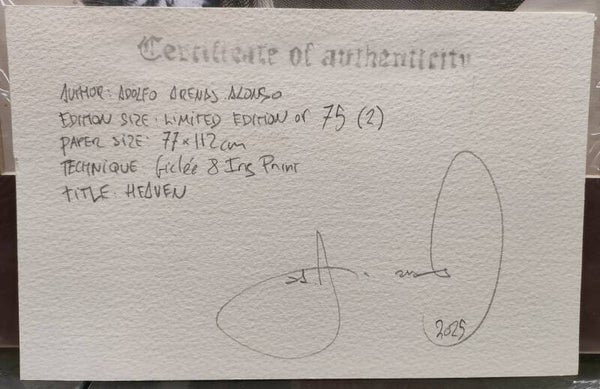 Certificate of authenticity
AUTHOR: ADOLFO ARENAS ALONSO
EDITION SIZE: LIMITED EDITION OF 75 (2)
PAPER SIZE: 77x112cm
TECHNIQUE: Giclée 8 Ink Print
TITLE: HEAVEN
2025